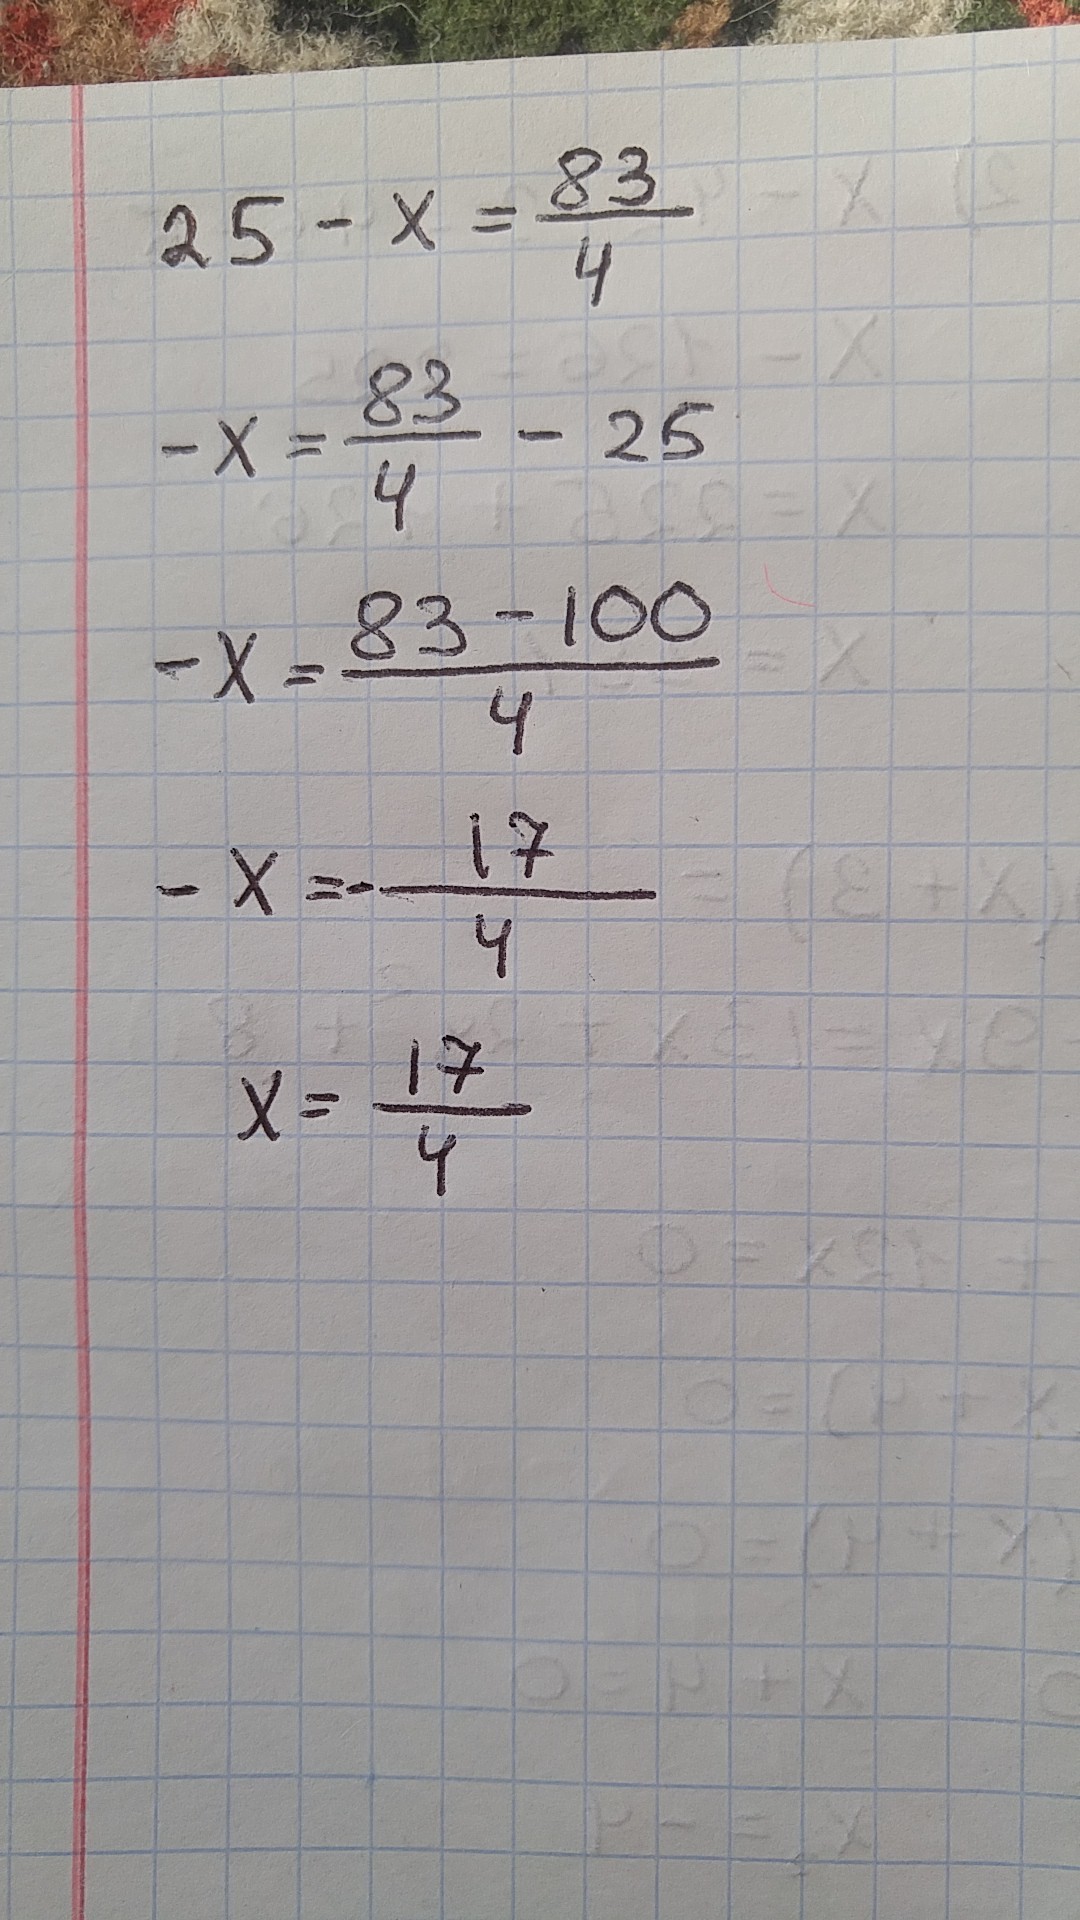 25 - x = 83/4
-x = 83/4 - 25
-x = (83 - 100)/4
-x = -17/4
x = 17/4